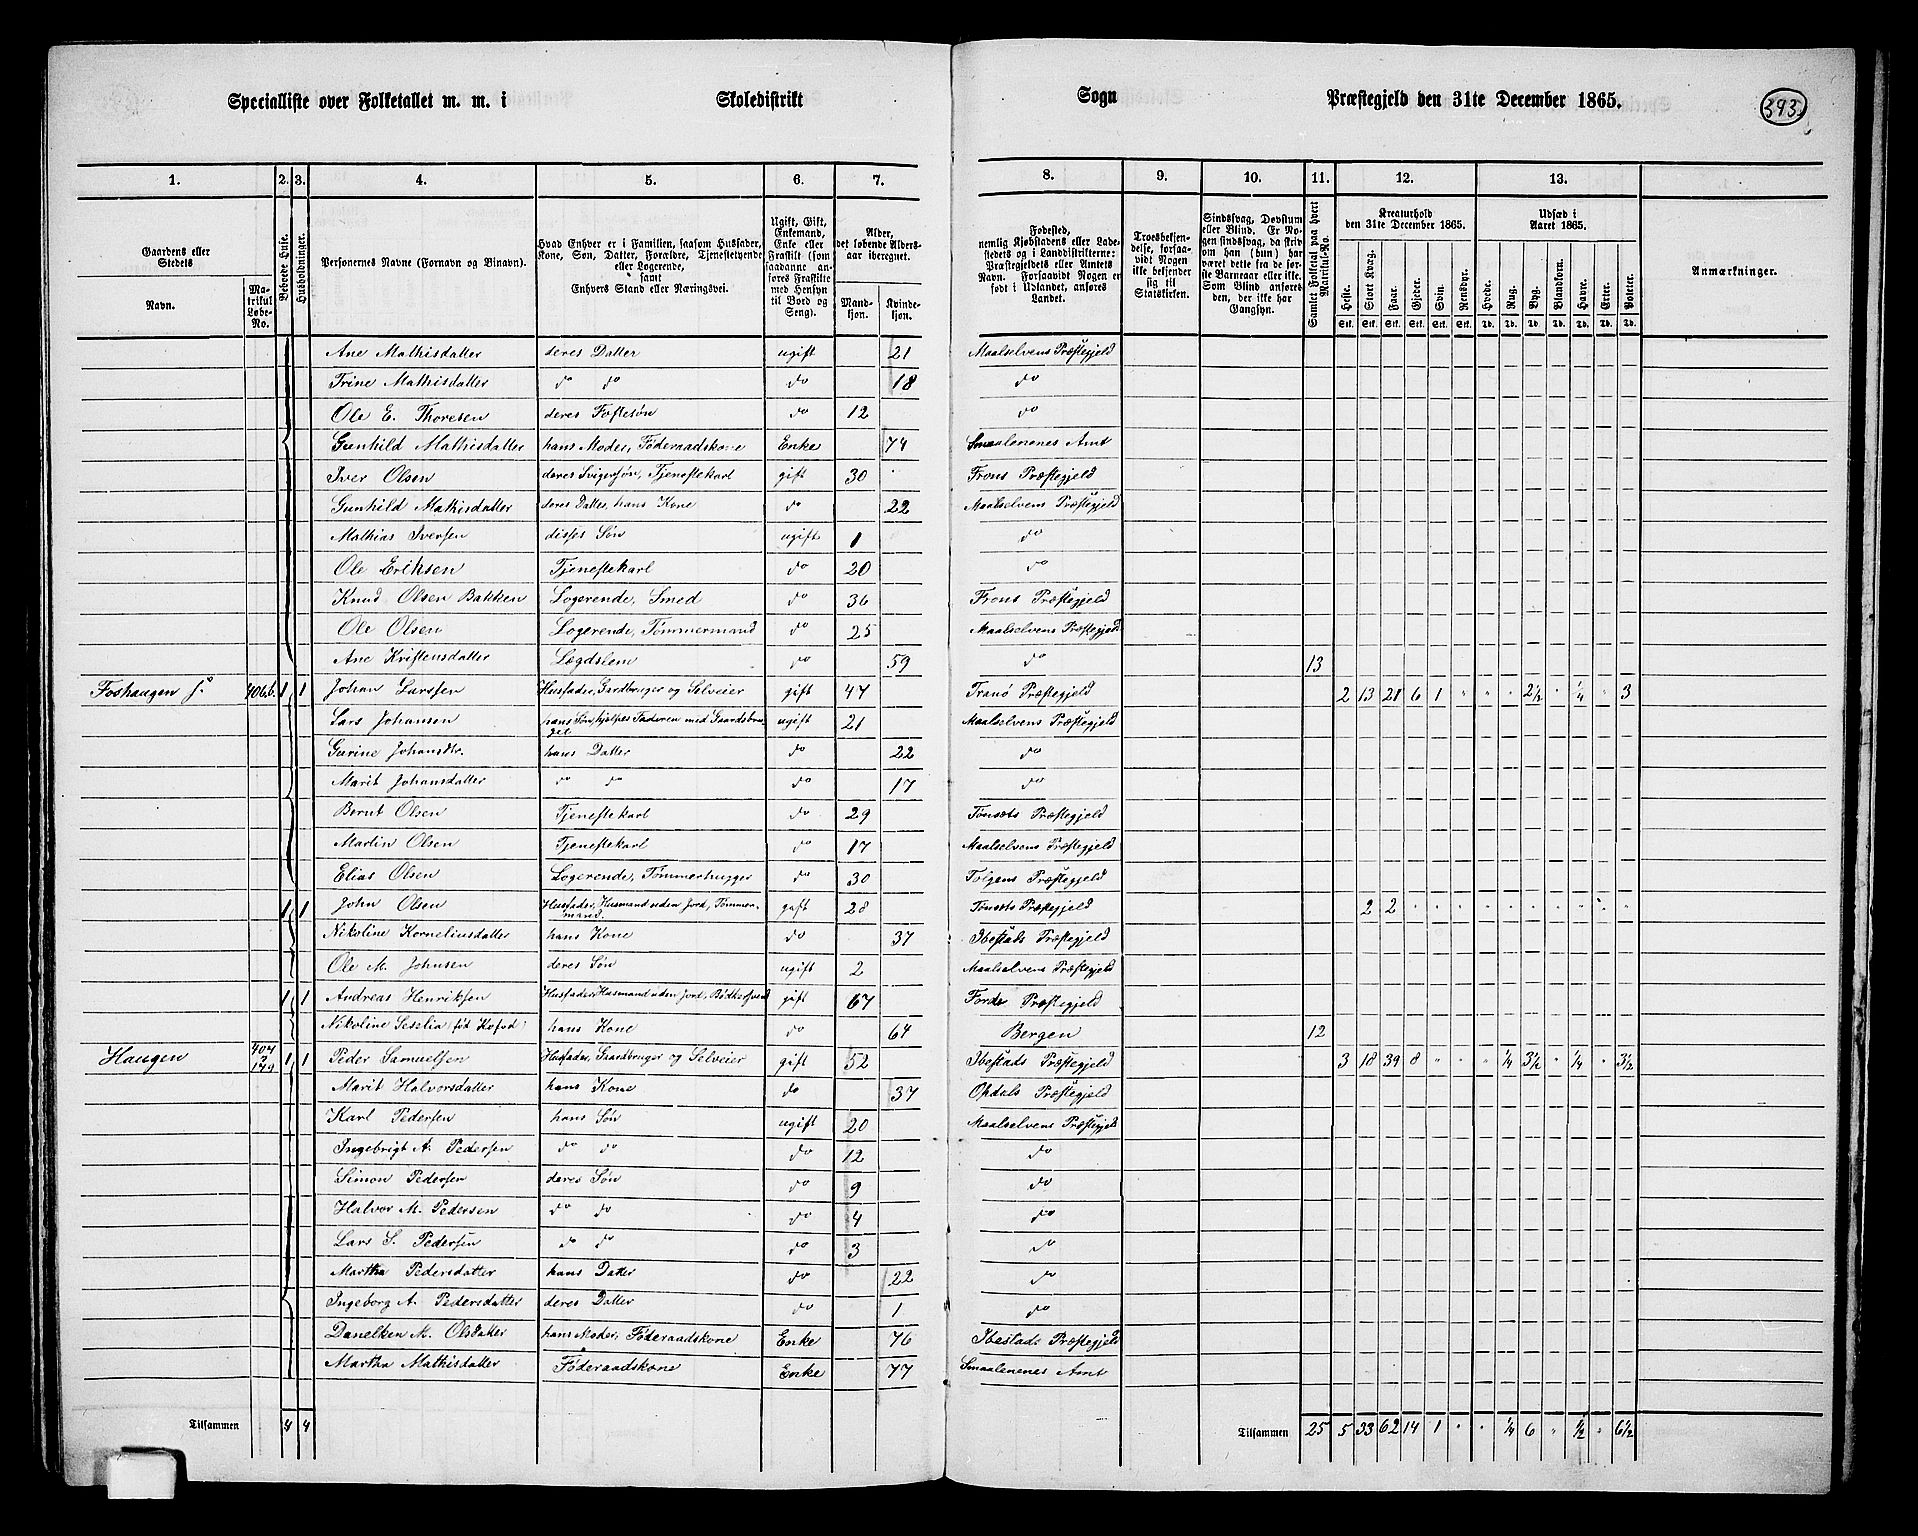 Specialliste over Folketallet m. m. i Skoledistrikt Sogn Præstegjeld den 31te December 1865. 393
1. 2. 3. 4. 5. 6. 7. 8. 9. 10. 11. 12. 13.
Gaardens eller Stedets
Navn.
Matrikul Løbe-No.
Beboede Huse.
Husholdninger.
Personernes Navne (Fornavn og Binavn).
Hvad Enhver er i Familien, saasom Husfader,
Kone, Søn, Datter, Forældre, Tjenestetyende
eller Logerende,
samt
Enhvers Stand eller Næringsvei.
Ugift, Gift,
Enkemand,
Enke eller
Fraskilt (som
saadanne anføres
Fraskilte
med Hensyn
til Bord og
Seng).
Alder,
det løbende Alders-
aar iberegnet.
Mandkjøn.
Kvindekjøn.
Fødested,
nemlig Kjøbstadens eller Ladestedets
og i Landdistrikterne:
Præstegjeldets eller Amtets
Navn. Forsaavidt Nogen er
født i Udlandet, anføres
Landet.
Troesbekjendelse,
forsaavidt
Nogen
ikke bekjender
sig til
Statskirken.
Sindssvag, Døvstum
eller Blind. Er Nogen
sindssvag, da skrives
om han (hun) har
været dette fra de første
Barneaar eller ikke.
Som Blind anføres
den, der ikke har
Gangsyn.
Samlet Folketal paa hvert Matrikul-No.
Kreaturhold
den 31te December 1865.
Heste. Stort Kvæg. Faar. Gjeder. Svin. Rensdyr.
Stk. Stk. Stk. Stk. Stk. Stk.
Udsæd i
Aaret 1865.
Hvede. Rug. Byg. Blandkorn. Havre. Erter. Poteter.
Td. Td. Td. Td. Td. Td. Td.
Anmærkninger.
Ane Mathisdatter deres Datter ugift 21 Maalselvens Præstegjeld
Trine Mathisdatter do do do 18 do
Ole E. Thoresen deres Fostesøn do 12 do
Gunhild Mathisdatter hans Moder, Føderaadskone Enke 74 Smaalenenes Amt
Iver Olsen deres Svigersøn, Tjenestekarl gift 30 Frons Præstegjeld
Gunhild Mathisdatter deres Datter, hans Kone do 22 Maalselvens Præstegjeld
Mathias Iversen disses Søn ugift 1 do
Ole Eriksen Tjenestekarl do 20 do
Knud Olsen Bakken Logerende, Smed do 36 Frons Præstegjeld
Ole Olsen Logerende, Tømmermand do 25 Maalselvens Præstegjeld
Ane Kristensdatter Lægdslem do 59 do 13
Foshaugen s. 406b. 1 1 Johan Larssen Husfader, Gardbruger og Selveier gift 47 Tranø Præstegjeld 2 13 21 6 1 " " " 2½ " ¼ " 3
Lars Johansen hans Søn, hjelper Faderen med Gaardsbruget ugift 21 Maalselvens Præstegjeld
Gurine Johansdtr. hans Datter do 22 do
Marit Johansdatter do do do 17 do
Bernt Olsen Tjenestekarl do 29 Tønsets Præstegjeld
Martin Olsen Tjenestekarl do 17 Maalselvens Præstegjeld
Elias Olsen Logerende, Tømmerhugger do 30 Tolgens Præstegjeld
1 1 John Olsen Husfader, Husmand uden Jord, Tømmermand. gift 28 Tønsets Præstegjeld 2 2 " " " " " " " " " "
Nikoline Korneliusdatter hans Kone do 37 Ibestads Præstegjeld
Ole M. Johnsen deres Søn ugift 2 Maalselvens Præstegjeld
1 1 Andreas Henriksen Husfader, Husmand uden Jord, Bødkersvend gift 67 Førde Præstegjeld
Nikoline Seselia (fød Kofod) hans Kone do 64 Bergen 12
Haugen 407 1 1 Peder Samuelsen Husfader, Gaardbruger og Selveier gift 52 Ibestads Præstegjeld 3 18 39 8 " " " ¼ 3½ " ¼ " 3½
Marit Halvorsdatter hans Kone do 37 Opdals Præstegjeld
Karl Pedersen hans Søn ugift 20 Maalselvens Præstegjeld
Ingebrigt A. Pedersen do do do 12 do
Simon Pedersen deres Søn do 9 do
Halvor M. Pedersen do do do 4 do
Lars S. Pedersen do do do 3 do
Martha Pedersdatter hans Datter do 22 do
Ingeborg A. Pedersdatter deres Datter do 1 do
Danelken M. Olsdatter hans Moder, Føderaadskone Enke 76 Ibestads Præstegjeld
Martha Mathisdatter Føderaadskone Enke 77 Smaalenenes Amt
Tilsammen 4 4 Tilsammen 25 5 33 62 14 1 " " ¼ 6 " ½ " 6½